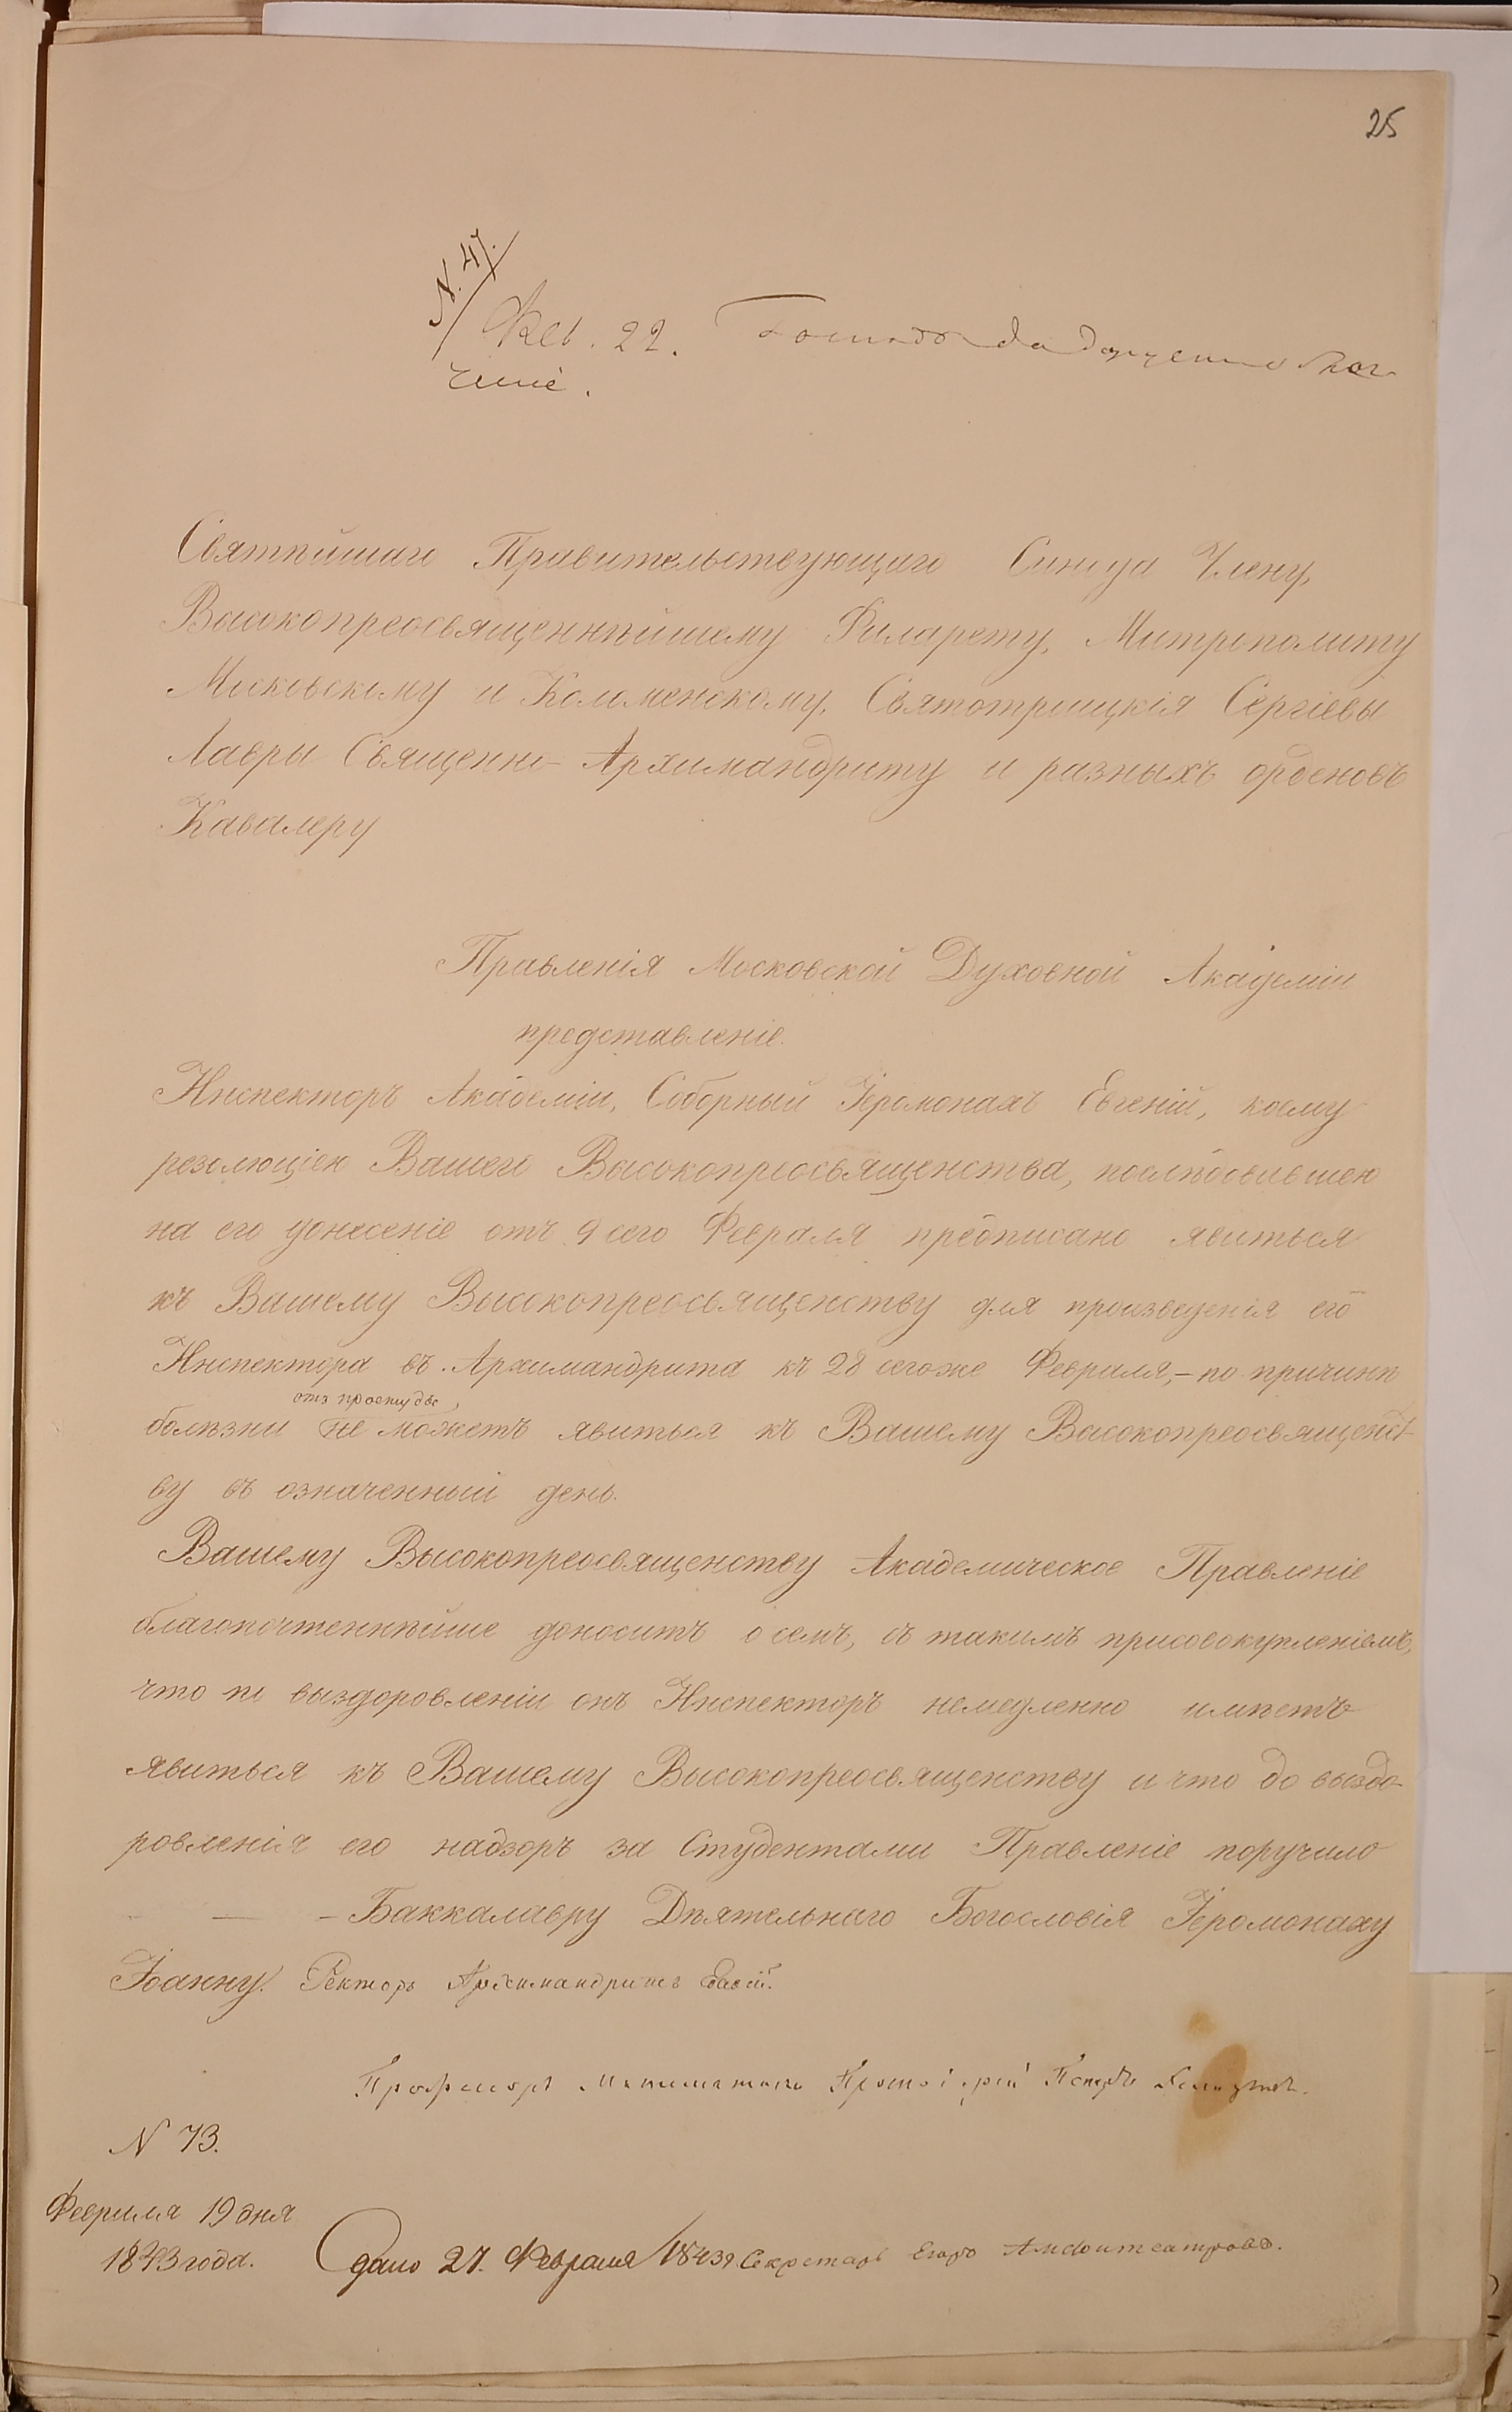 25
N. 47.
Фев. 22. Господь да даруетъ облег
ченіе.
Святѣйшаго Правительствующаго Синода Члену,
Высокопреосвященнѣйшему Филарету, Митрополиту
Московскому и Коломенскому, Святотроицкія Сергіевы
Лавры Священно-Архимандриту и разныхъ орденовъ
Кавалеру
Правленія Московской Духовной Академіи
представленіе.
Инспекторъ Академіи, Соборный Іеромонахъ Евгеній, коему
резолюціею Вашего Высокопреосвященства, послѣдовавшею
на его донесеніе отъ 9 сего Февраля предписано явиться
къ Вашему Высокопреосвященству для произведенія его
Инспектора въ Архимандрита къ 28 сегоже Февраля,-по причинѣ
отъ простуды,
болѣзни не можетъ явиться къ Вашему Высокопреосвященст-
ву въ означенный день.
Вашему Высокопреосвященству Академическое Правленіе
благопочтеннѣйше доноситъ о семъ, съ такимъ присовокупленіемъ,
что по выздоровленіи онъ Инспекторъ немедленно имѣетъ
явиться къ Вашему Высокопреосвященству и что до выздо-
ровленія его надзоръ за Студентами Правленіе поручило
Баккалавру Дѣятельнаго Богословія Іеромонаху
Іоанну. Ректоръ Архимандритъ Евсевій.
Профессоръ Математики Протоіерей Петръ
N 73.
Февраля 19 дня
1843 года.
Сдано 27. Февраля 1843 г. Секретарь Егоръ Амфитеатровъ.